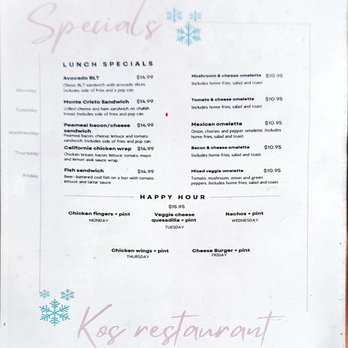 Specials
LUNCH SPECIALS
Monday
Avocado BLT $14.99
classic BLT sandwich with avocado slices
Includes side of fries and a pop can
Tuesday
Monte Cristo Sandwich $14.99
Grilled cheese and ham sandwich on challah
bread. Includes side of fries and pop can.
Wednesday
Peameal bacon/cheese $14.99
sandwich
Peameal bacon, cheese, lettuce and tomato
sandwich. Includes side of fries and pop can.
Thursday
California chicken wrap $14.99
Chicken breast, bacon, lettuce, tomato, mayo
and lemon aioli sauce wrap.
Friday
Fish sandwich $14.99
Beer-battered cod fish on a bun with tomato,
lettuce and tartar sauce.
Mushroom & cheese omelette $10.95
Includes home fries, salad and toast.
Tomato & cheese omelette $10.95
Includes home fries, salad and toast.
Mexican omelette $10.95
Onion, chorizo and pepper omelette. Includes
home fries, salad and toast.
Bacon & cheese omelette $10.95
Includes home fries, salad and toast.
Mixed veggie omelette $10.95
Tomato, mushroom, onion and green
peppers. Includes home fries, salad and toast.
HAPPY HOUR
$15.95
Chicken fingers + pint
MONDAY
Veggie cheese
quesadilla + pint
TUESDAY
Nachos + pint
WEDNESDAY
Chicken wings + pint
THURSDAY
Cheese Burger + pint
FRIDAY
Kos restaurant